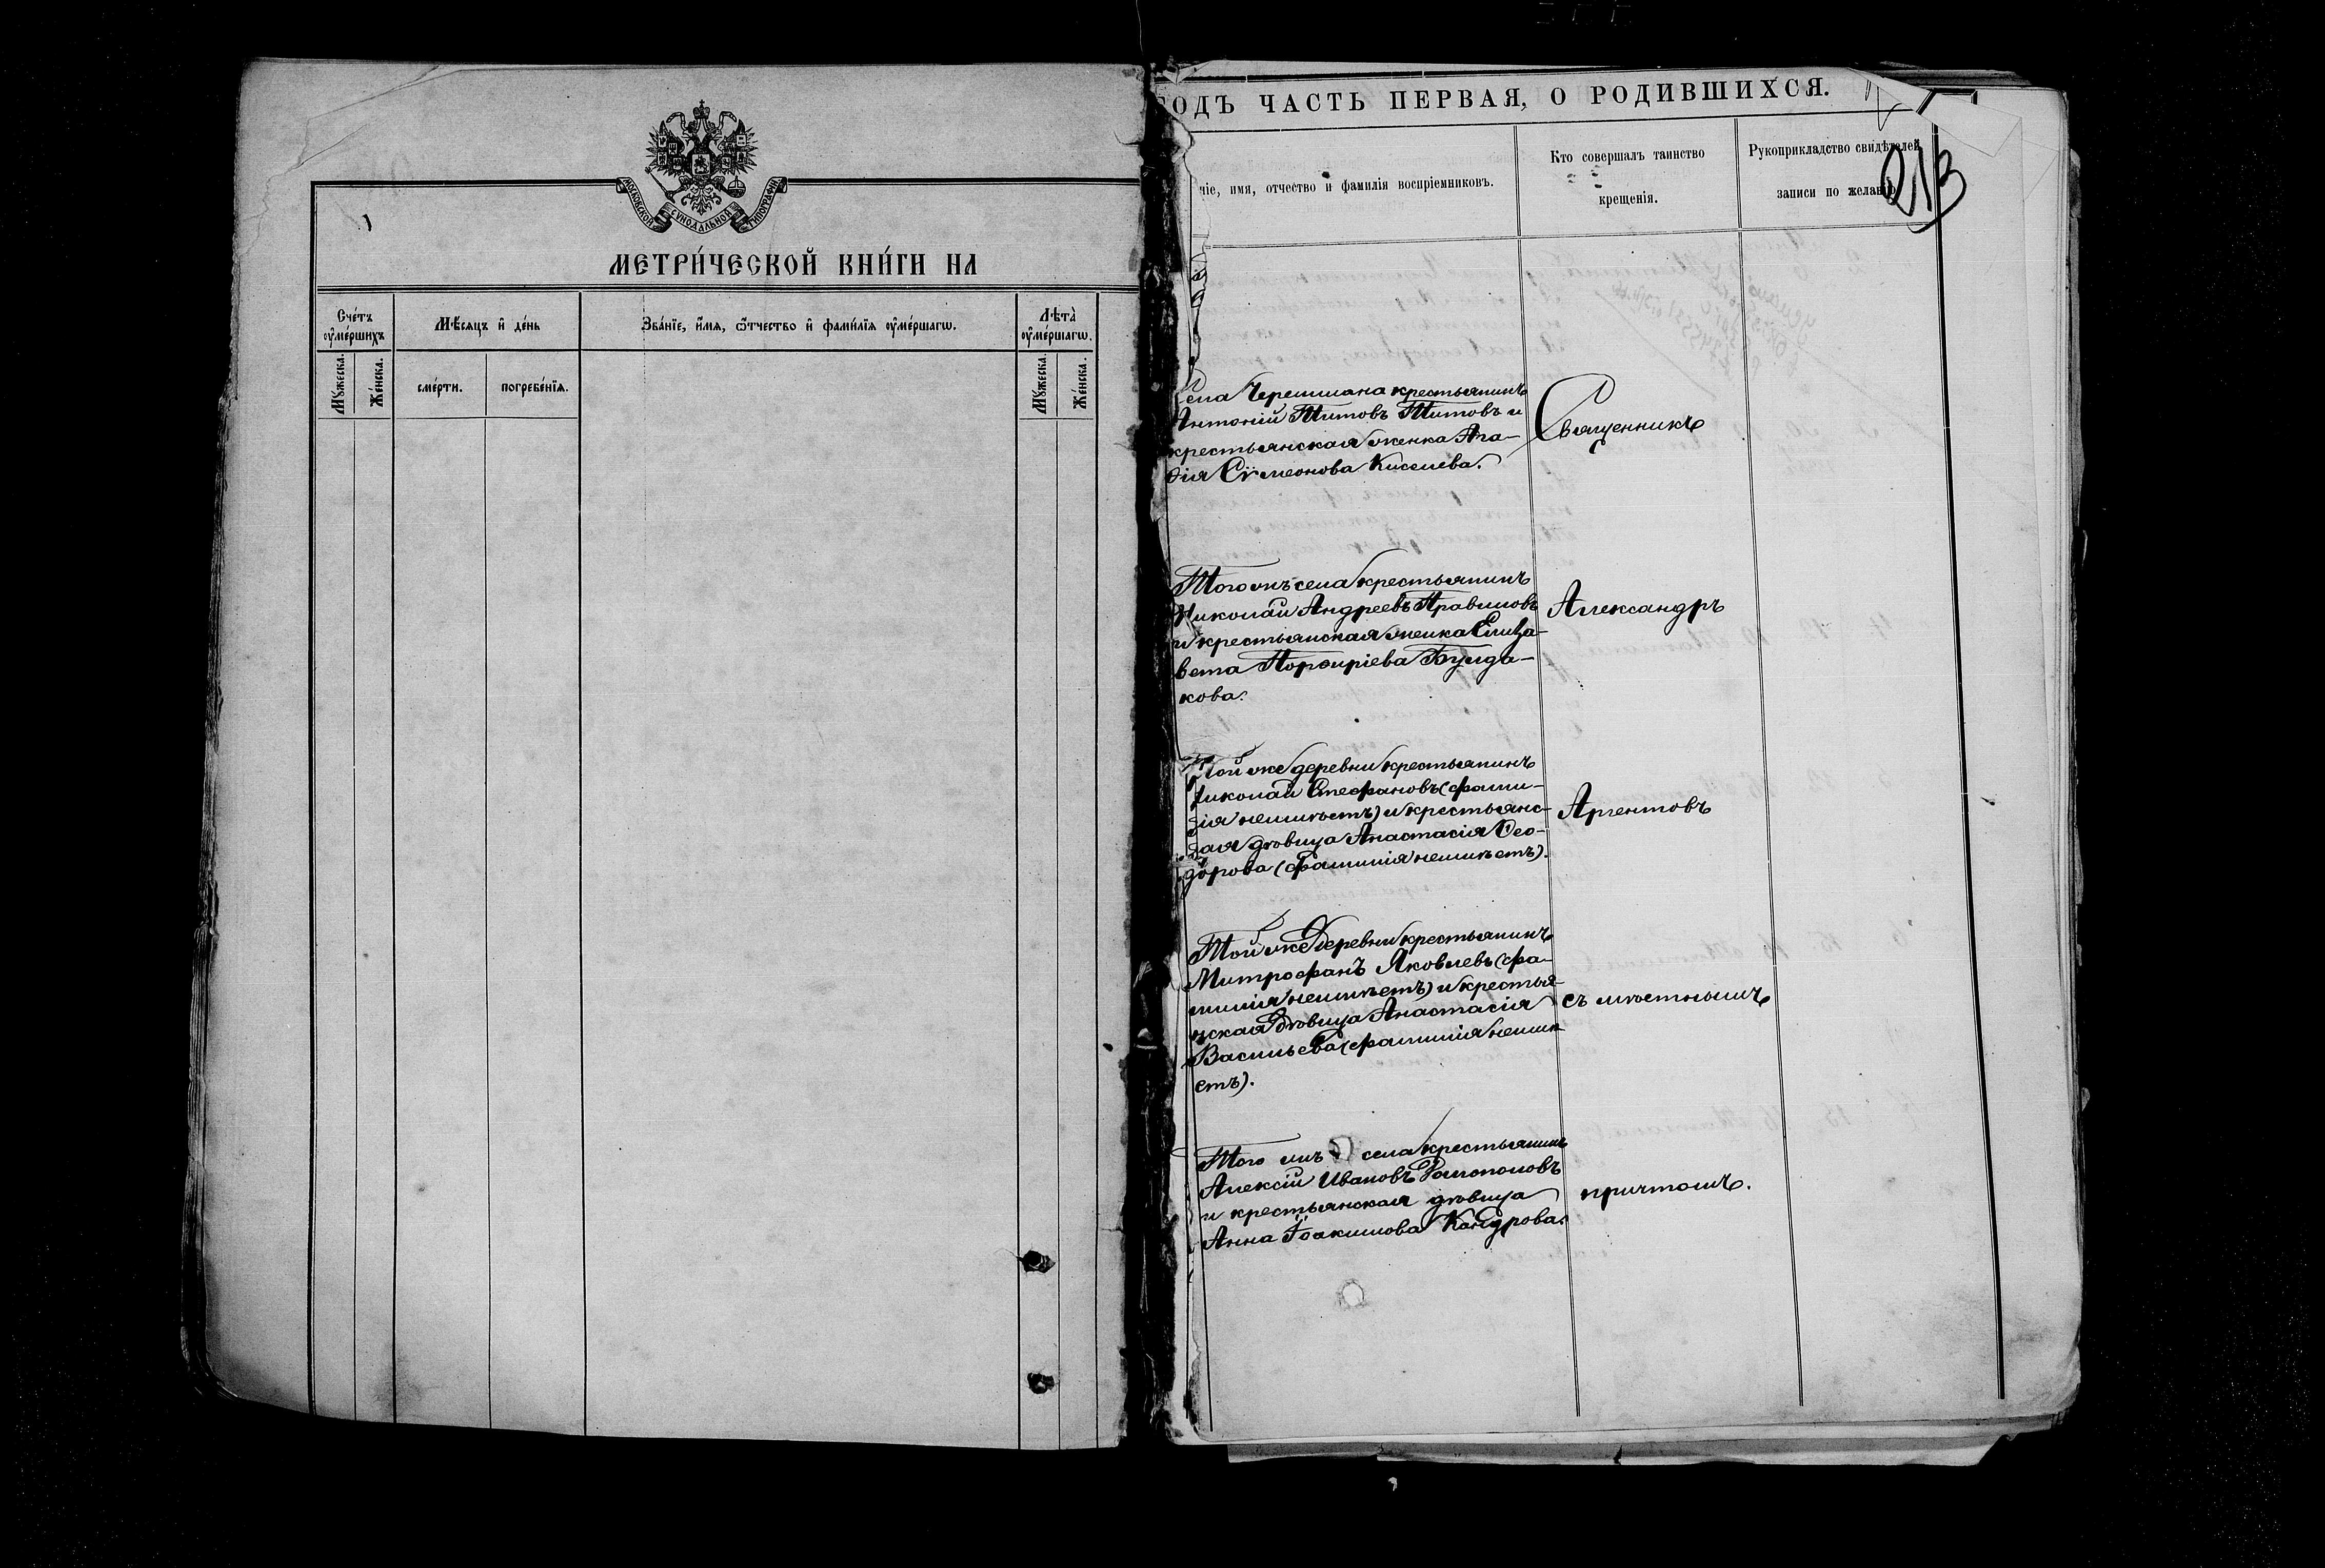 МОСКОВСКОЙ СѴНОДАЛЬНОЙ ТИПОГРАФІИ
МЕТРИ́ЧЕСКОЙ КНИ́ГИ НА
Счéтъ оумéршихъ
Мѣ́сяцъ и дéнь
Звáнїе, и́мя, ѻ҆́тчество и фамѝлїя оумéршагѡ.
Лѣтà оумéршагѡ.
Мýжеска.
Жéнска.
смéрти.
погребéнїя.
Мýжеска.
Жéнска.
ГОДЪ ЧАСТЬ ПЕРВАЯ, О РОДИВШИХСЯ.
213
ніе, имя, отчество и фамилія воспріемниковъ.
Кто совершалъ таинство
крещенія.
Рукоприкладство свидѣтелей
записи по желанію
Села Черемшана крестьянинъ
Антоній Титовъ Титовъ и
крестьянская женка Ага-
ѳія Сѵмеонова Киселева.
Священникъ
Того жъ села крестьянинъ
Николай Андреевъ Правиловъ
и крестьянская женка Елиза-
вета Порфиріева Булда-
кова.
Александръ
Той же деревни крестьянинъ
Николай Стефановъ (фами-
лія неимѣетъ) и крестьянс-
кая дѣвица Анастасія Ѳео-
дорова (фамилія неимѣетъ).
Аргентовъ
Той же деревни крестьянинъ
Митрофанъ Яковлевъ (фа-
милія неимѣетъ) и крестья-
нская дѣвица Анастасія
Васильева (фамилія неимѣ
етъ).
съ мѣстнымъ
Того жъ села крестьянинъ
Алексій Ивановъ
и крестьянская дѣвица
Анна Іоакимова Кандрова.
причтомъ.